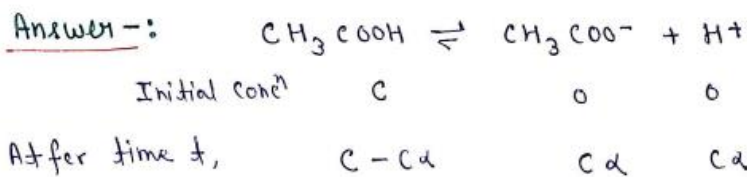 Answer -: CH₃COOH ⇌ CH₃COO⁻ + H⁺
Initial concⁿ C 0 0
Atfer time t, C - Cα Cα Cα